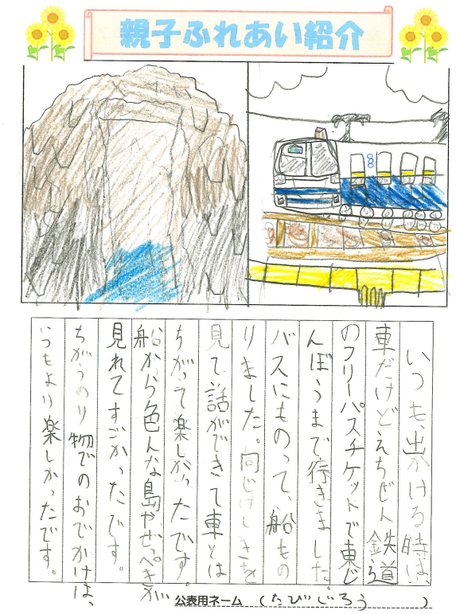 親子ふれあい紹介
いつも、出かける時は、
車だけどえちぜん鉄道
のフリーパスチケットで東じ
んぼうまで行きました。
バスにものって、船もの
りました。同じけしきを
見て、話ができて車とは
ちがって楽しかったです。
船から色んな島やぜっぺきが
見れてすごかったです。
ちがうのり物でのおでかけは、
いつもより楽しかったです。
公表用ネーム（たびじろう）